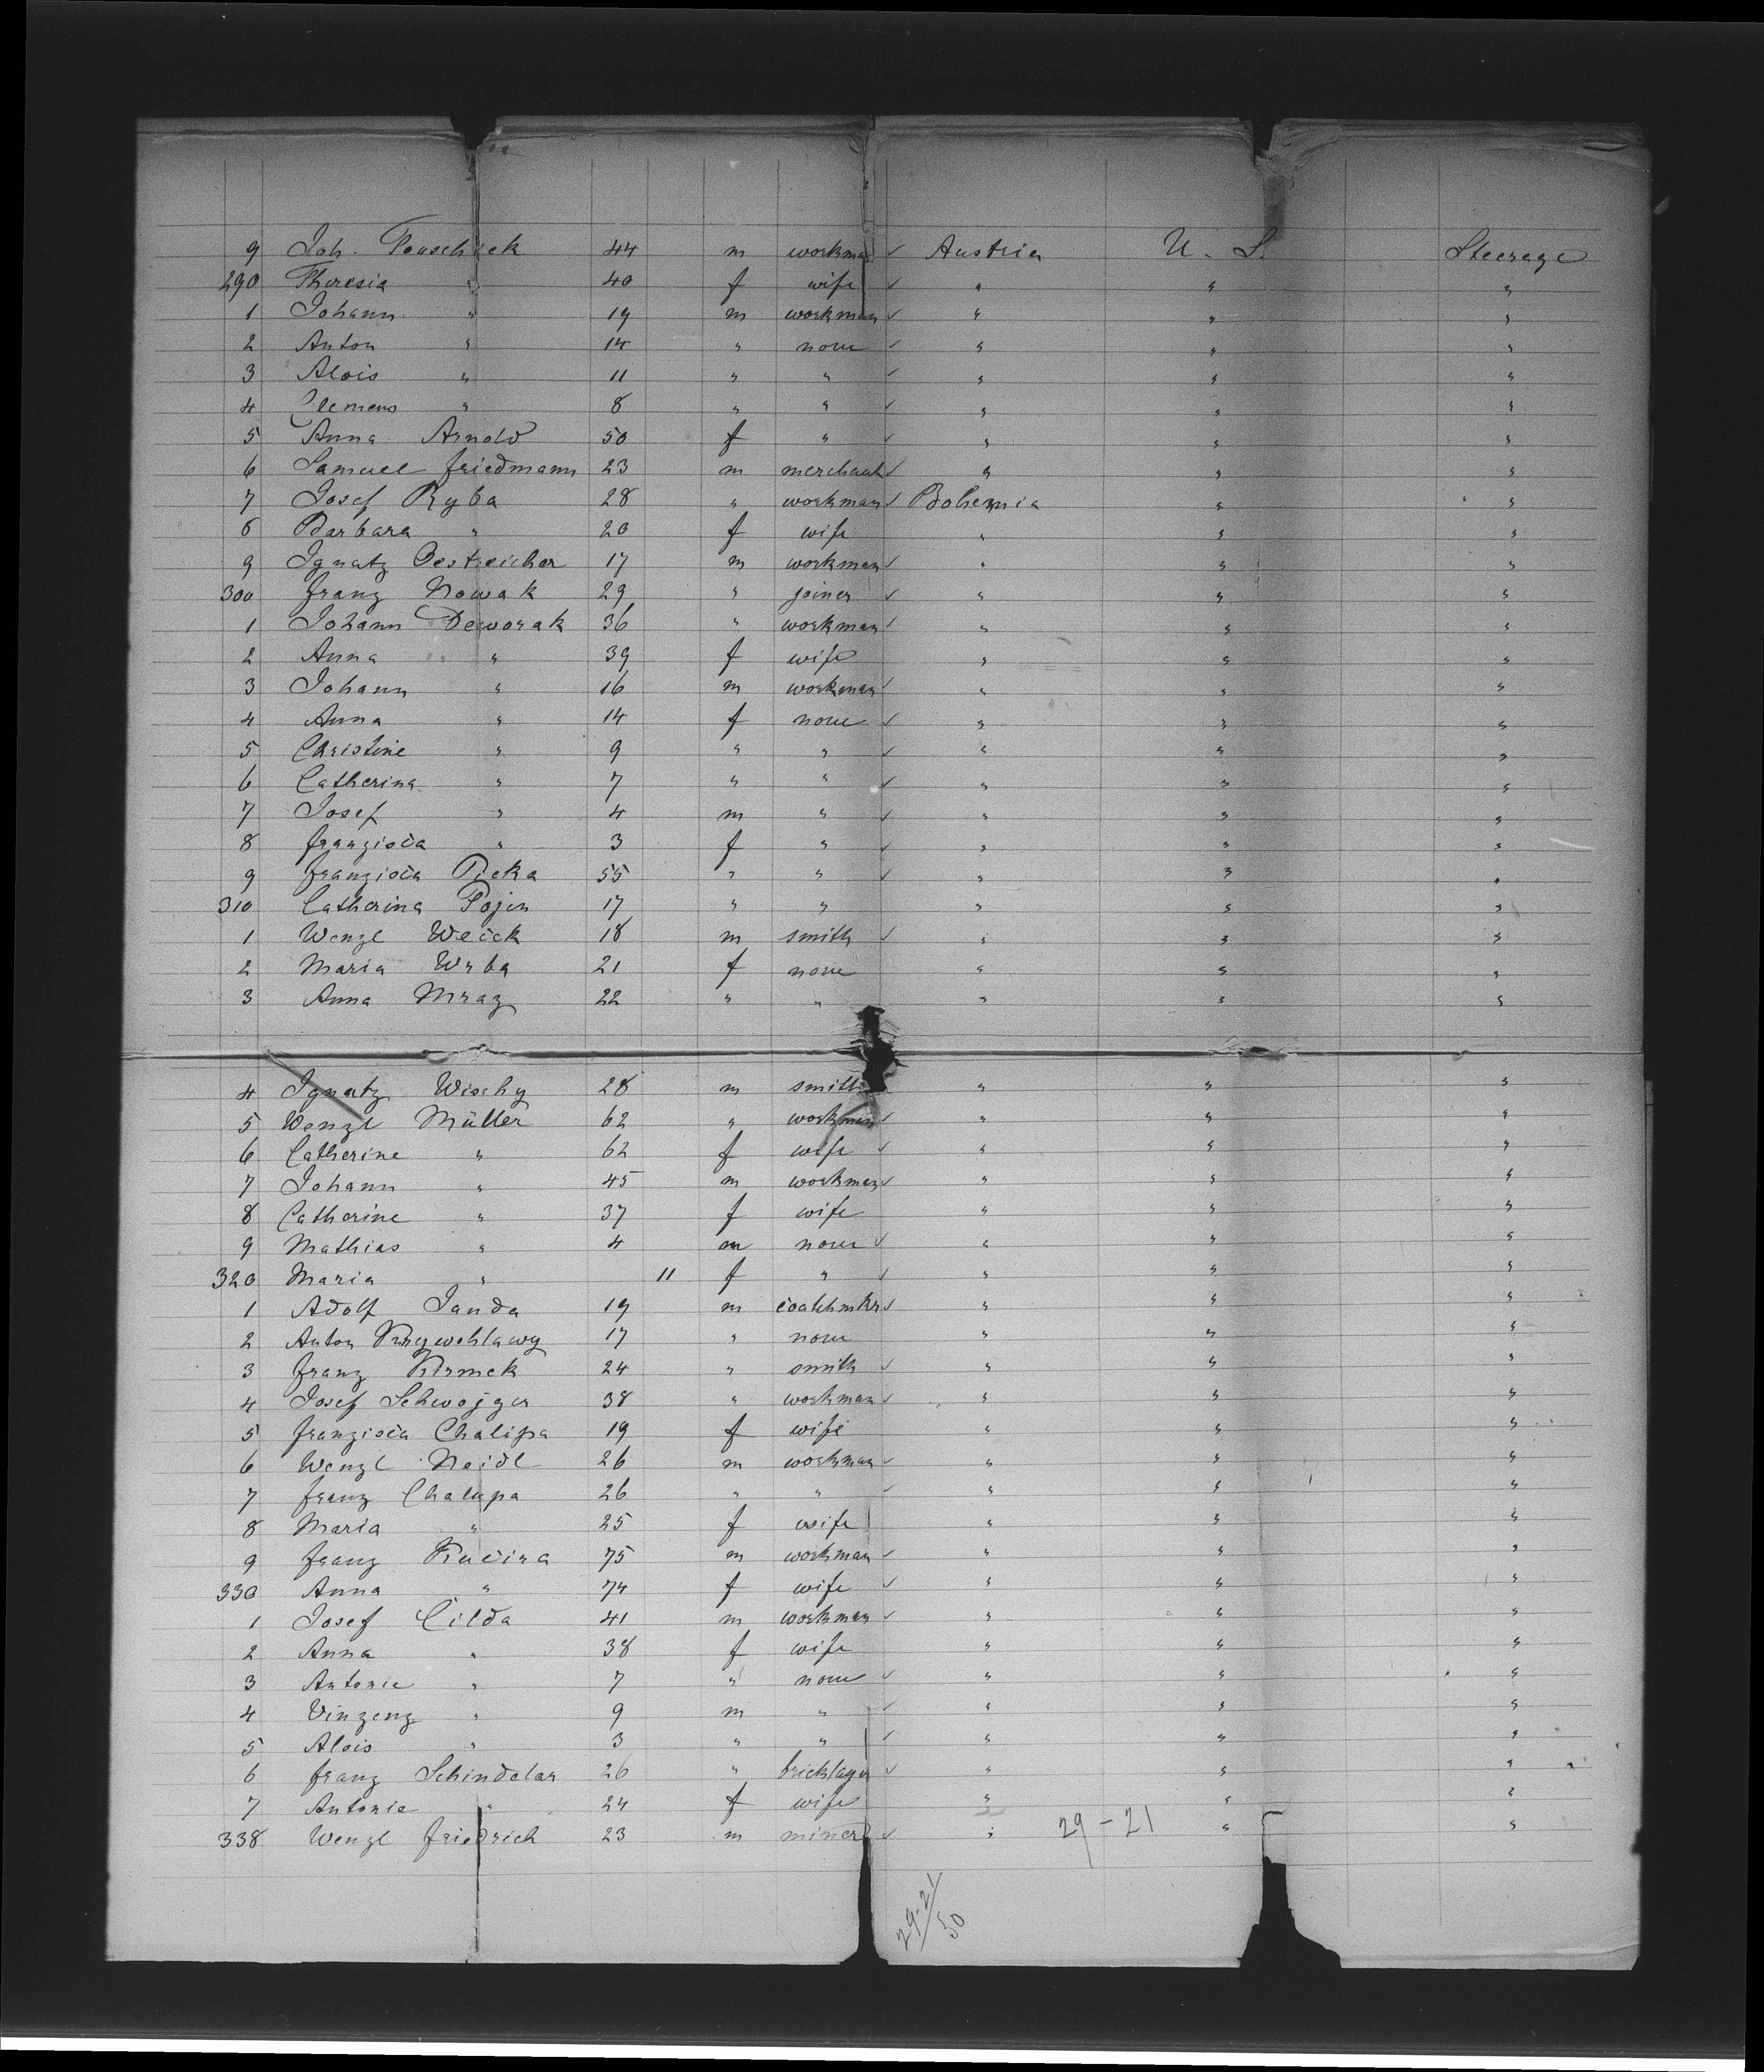 9 Joh. Peuschek 44 m workman ✓ Austria U. S. Steerage
290 Theresia " 40 f wife ✓ " " "
1 Johann " 19 m workman ✓ " " "
2 Anton " 14 " none ✓ " " "
3 Alois " 11 " " ✓ " " "
4 Clemens " 8 " " ✓ " " "
5 Anna Arnold 50 f " ✓ " " "
6 Samuel Friedmann 23 m merchant ✓ " " "
7 Josef Ryba 28 " workman ✓ Bohemia " "
8 Barbara " 20 f wife " " "
9 Ignatz Oestreicher 17 m workman ✓ " " "
300 Franz Nowak 29 " joiner ✓ " " "
1 Johann Deworak 36 " workman ✓ " " "
2 Anna " 39 f wife " " "
3 Johann " 16 m workman ✓ " " "
4 Anna " 14 f none ✓ " " "
5 Christine " 9 " " ✓ " " "
6 Catherina " 7 " " ✓ " " "
7 Josef " 4 m " ✓ " " "
8 Franzisca " 3 f " ✓ " " "
9 Franzisca Picka 55 " " ✓ " " "
310 Catherina Pojen 17 " " " " "
1 Wenzl Weick 18 m smith ✓ " " "
2 Maria Wrba 21 f none " " "
3 Anna Mraz 22 " " " " "
4 Ignatz Wischy 28 m smith " " "
5 Wenzl Müller 62 " workman ✓ " " "
6 Catherine " 62 f wife ✓ " " "
7 Johann " 45 m workman ✓ " " "
8 Catherine " 37 f wife " " "
9 Mathias " 4 m none ✓ " " "
320 Maria " 11 f " ✓ " " "
1 Adolf Janda 19 m coachmkr ✓ " " "
2 Anton 17 " none " " "
3 Franz 24 " smith ✓ " " "
4 Josef Schwojger 38 " workman ✓ " " "
5 Franzisca Chalipa 19 f wife " " "
6 Wenzl Neidl 26 m workman ✓ " " "
7 Franz Chalupa 26 " " ✓ " " "
8 Maria " 25 f wife " " "
9 Franz Kucira 75 m workman ✓ " " "
330 Anna " 74 f wife ✓ " " "
1 Josef Cilda 41 m workman ✓ " " "
2 Anna " 38 f wife " " "
3 Antonie " 7 " none ✓ " " "
4 Vinzenz " 9 m " ✓ " " "
5 Alois " 3 " " ✓ " " "
6 Franz Schindelar 26 " bricklayer ✓ " " "
7 Antonie " 24 f wife " " "
338 Wenzl Friedrich 23 m miner ✓ " 29-21 " "
29-21/50